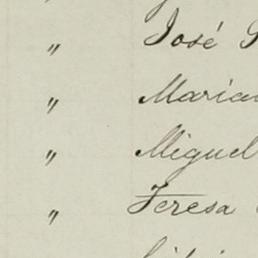 " José
" Maria
" Miguel
" Teresa